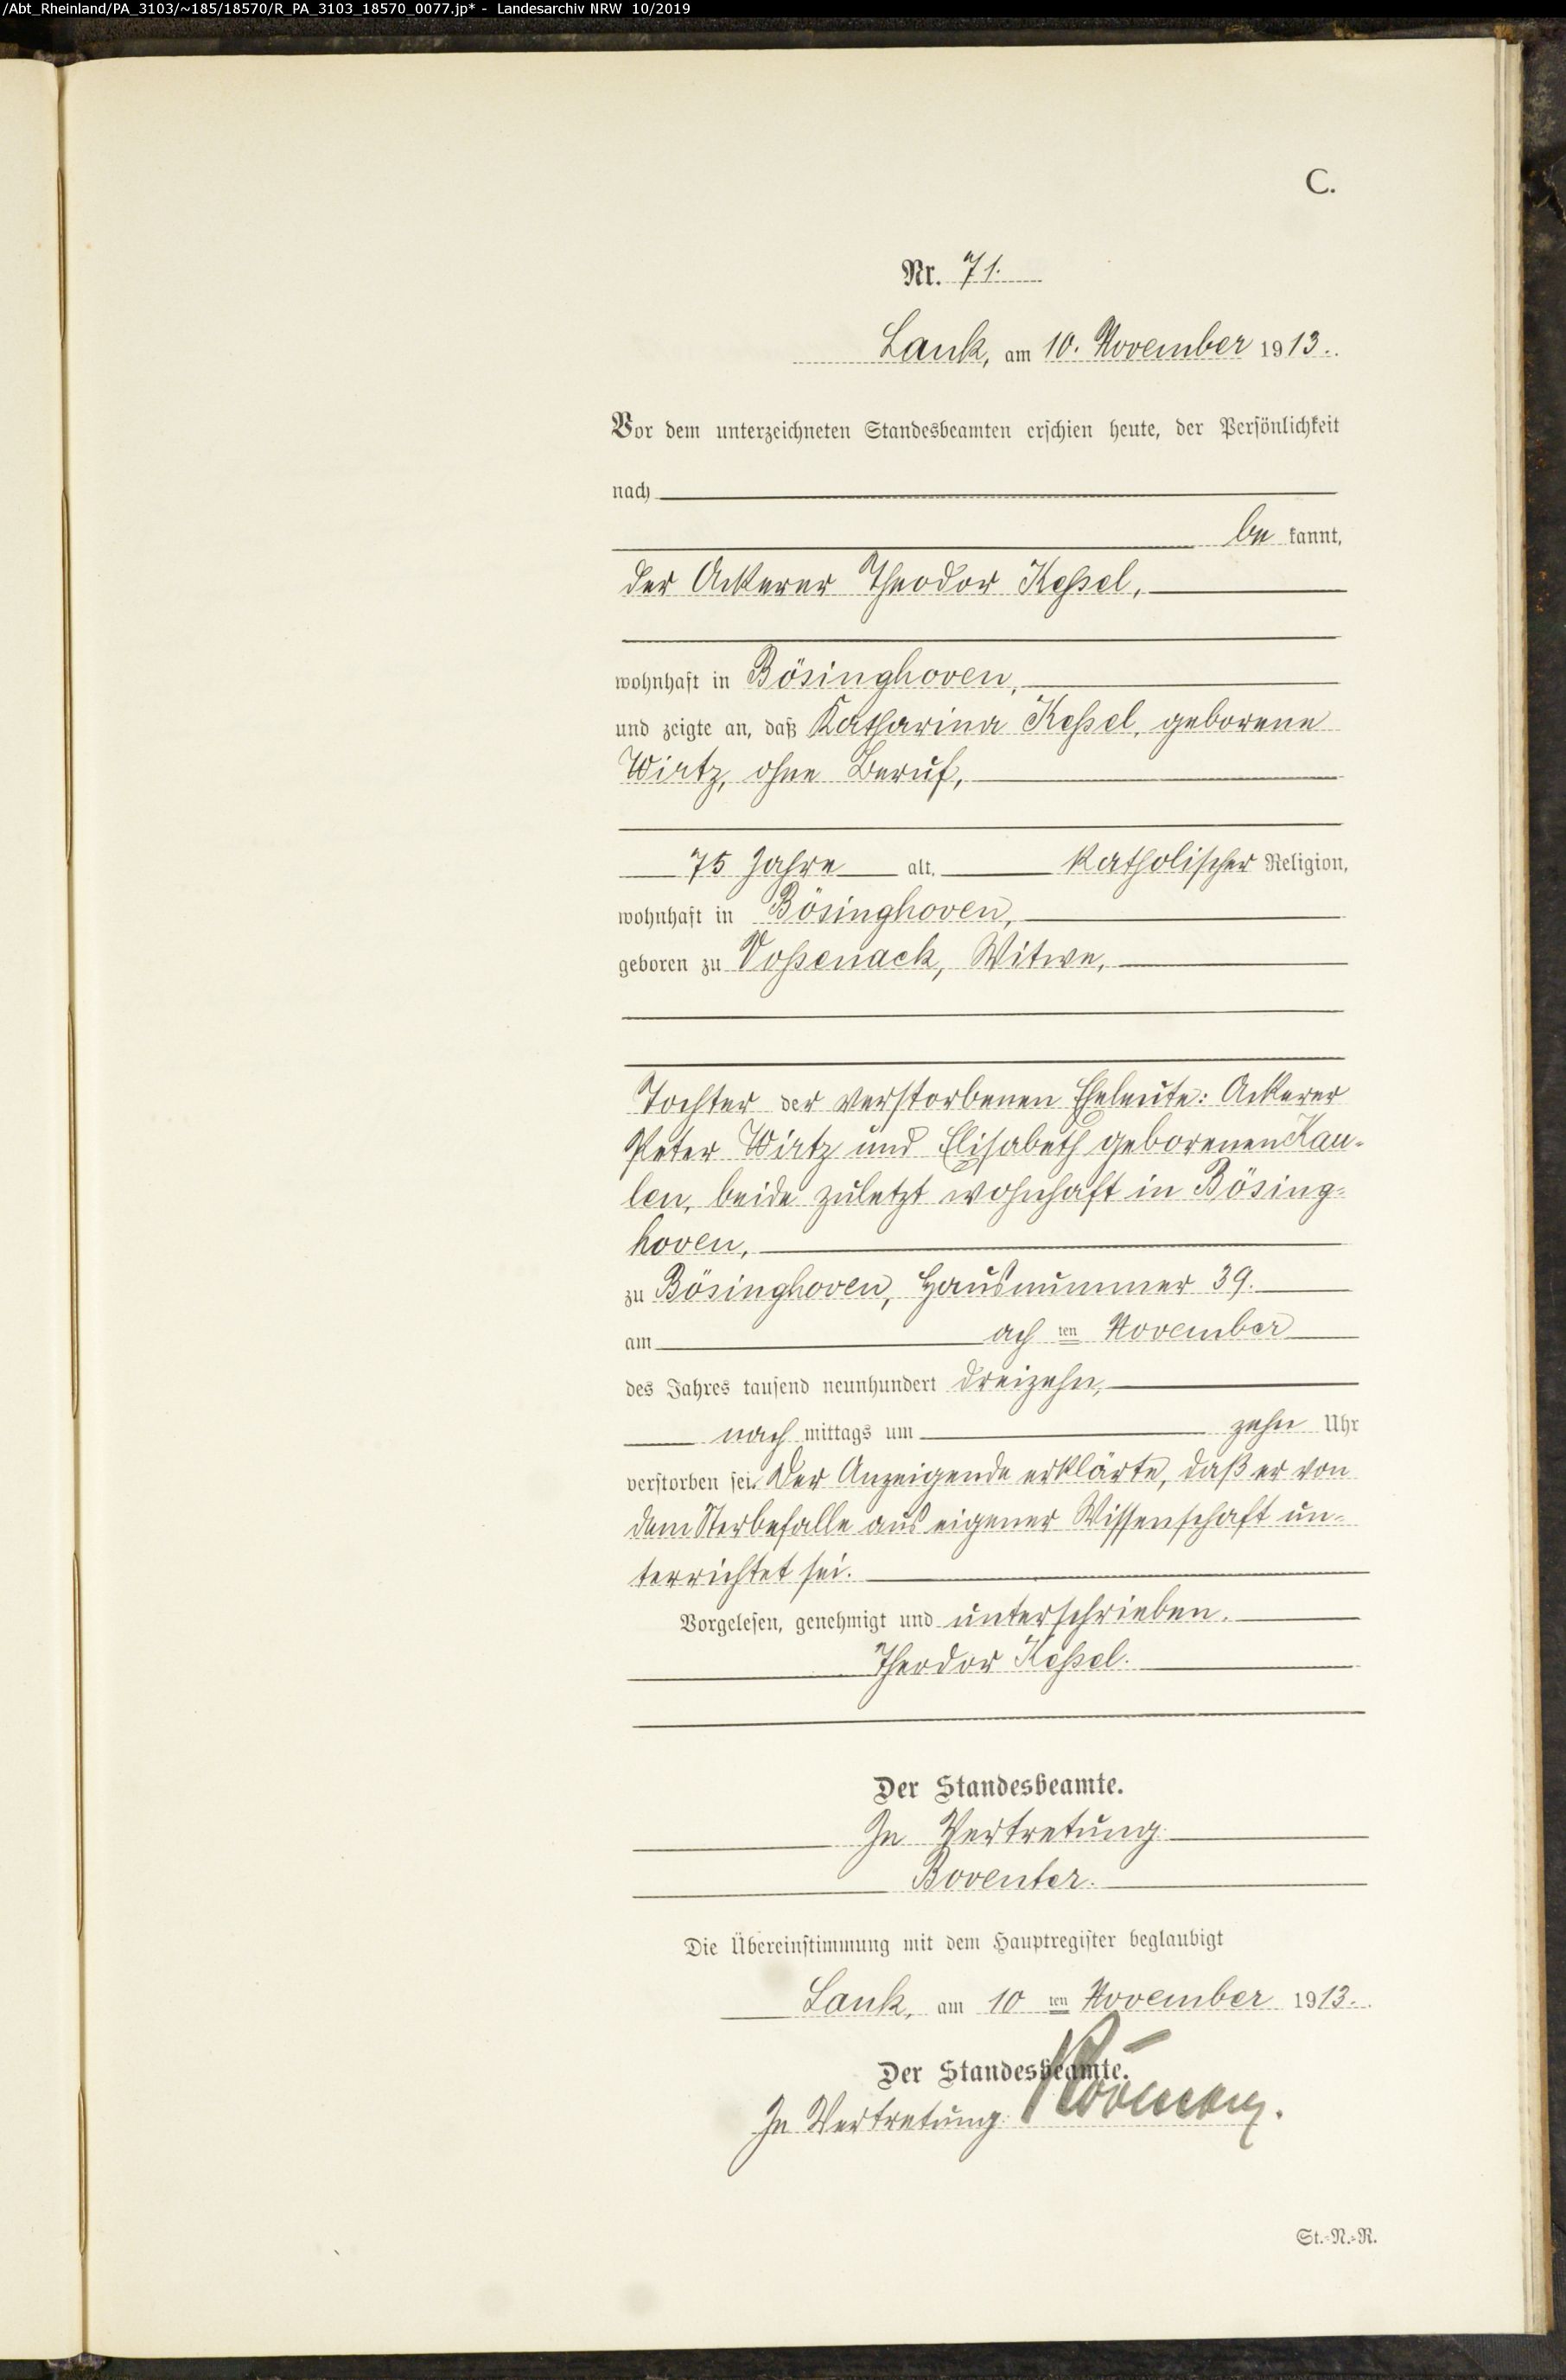 /Abt_Rheinland/PA_3103/~185/18570/R_PA_3103_18570_0077.jp* - Landesarchiv NRW 10/2019
C.
Nr. 71.
Lank, am 10. November 1913.
Vor dem unterzeichneten Standesbeamten erschien heute, der Persönlichkeit
nach
be kannt,
der Ackerer Theodor Keßel,
wohnhaft in Bösinghoven,
und zeigte an, daß Katharina Keßel, geborene
Wirtz, ohne Beruf,
75 Jahre alt, katholischer Religion,
wohnhaft in Bösinghoven,
geboren zu Voßenack, Witwe,
Tochter der verstorbenen Eheleute: Ackerer
Peter Wirtz und Elisabeth geborenen Kau-
len, beide zuletzt wohnhaft in Bösing-
hoven,
zu Bösinghoven, Hausnummer 39.
am ach ten November
des Jahres tausend neunhundert dreizehn,
nach mittags um zehn Uhr
verstorben sei. Der Anzeigende erklärte, daß er von
dem Sterbefalle aus eigener Wissenschaft un-
terrichtet sei.
Vorgelesen, genehmigt und unterschrieben.
Theodor Keßel.
Der Standesbeamte.
In Vertretung
Boventer.
Die Übereinstimmung mit dem Hauptregister beglaubigt
Lank, am 10 ten November 1913.
Der Standesbeamte.
In Vertretung:
St.-N.-R.